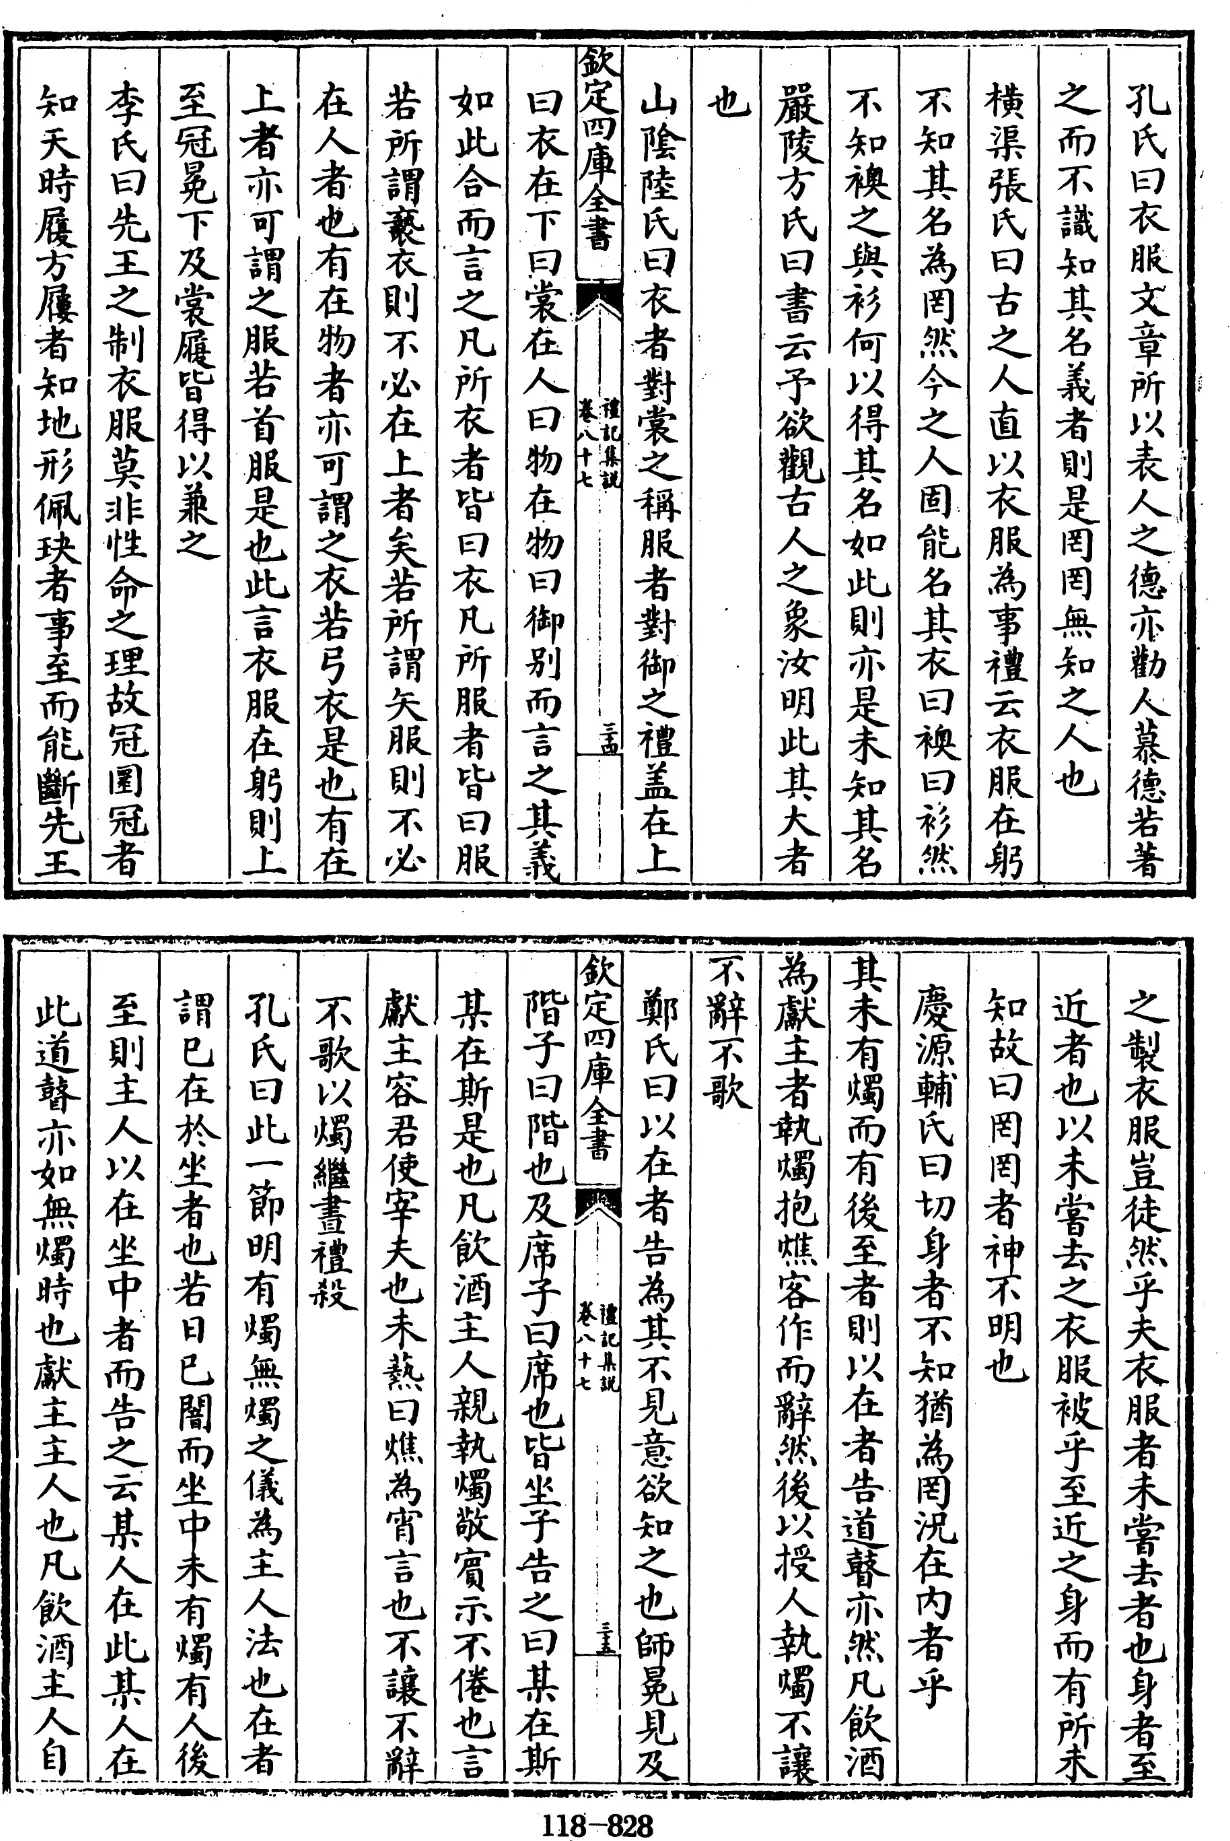 孔氏曰衣服文章所以表人之德亦勸人慕德若著
之而不識知其名義者則是罔罔無知之人也
橫渠張氏曰古之人直以衣服為事禮云衣服在躬
不知其名為罔然今之人固能名其衣曰襖曰衫然
不知襖之與衫何以得其名如此則亦是未知其名
嚴陵方氏曰書云予欲觀古人之象汝明此其大者
也
山陰陸氏曰衣者對裳之稱服者對御之禮盖在上
欽定四庫全書
禮記集說
卷八十七
三十四
曰衣在下曰裳在人曰物在物曰御别而言之其義
如此合而言之凡所衣者皆曰衣凡所服者皆曰服
若所謂褻衣則不必在上者矣若所謂矢服則不必
在人者也有在物者亦可謂之衣若弓衣是也有在
上者亦可謂之服若首服是也此言衣服在躬則上
至冠冕下及裳履皆得以兼之
李氏曰先王之制衣服莫非性命之理故冠圜冠者
知天時履方屨者知地形佩玦者事至而能斷先王
之製衣服豈徒然乎夫衣服者未嘗去者也身者至
近者也以未嘗去之衣服被乎至近之身而有所未
知故曰罔罔者神不明也
慶源輔氏曰切身者不知猶為罔況在内者乎
其未有燭而有後至者則以在者告道瞽亦然凡飲酒
為獻主者執燭抱燋客作而辭然後以授人執燭不讓
不辭不歌
鄭氏曰以在者告為其不見意欲知之也師冕見及
欽定四庫全書
禮記集說
卷八十七
三十五
階子曰階也及席子曰席也皆坐子告之曰某在斯
某在斯是也凡飲酒主人親執燭敬賓示不倦也言
獻主容君使宰夫也未爇曰燋為宵言也不讓不辭
不歌以燭繼晝禮殺
孔氏曰此一節明有燭無燭之儀為主人法也在者
謂已在於坐者也若日已闇而坐中未有燭有人後
至則主人以在坐中者而告之云某人在此某人在
此道瞽亦如無燭時也獻主主人也凡飲酒主人自
118-828